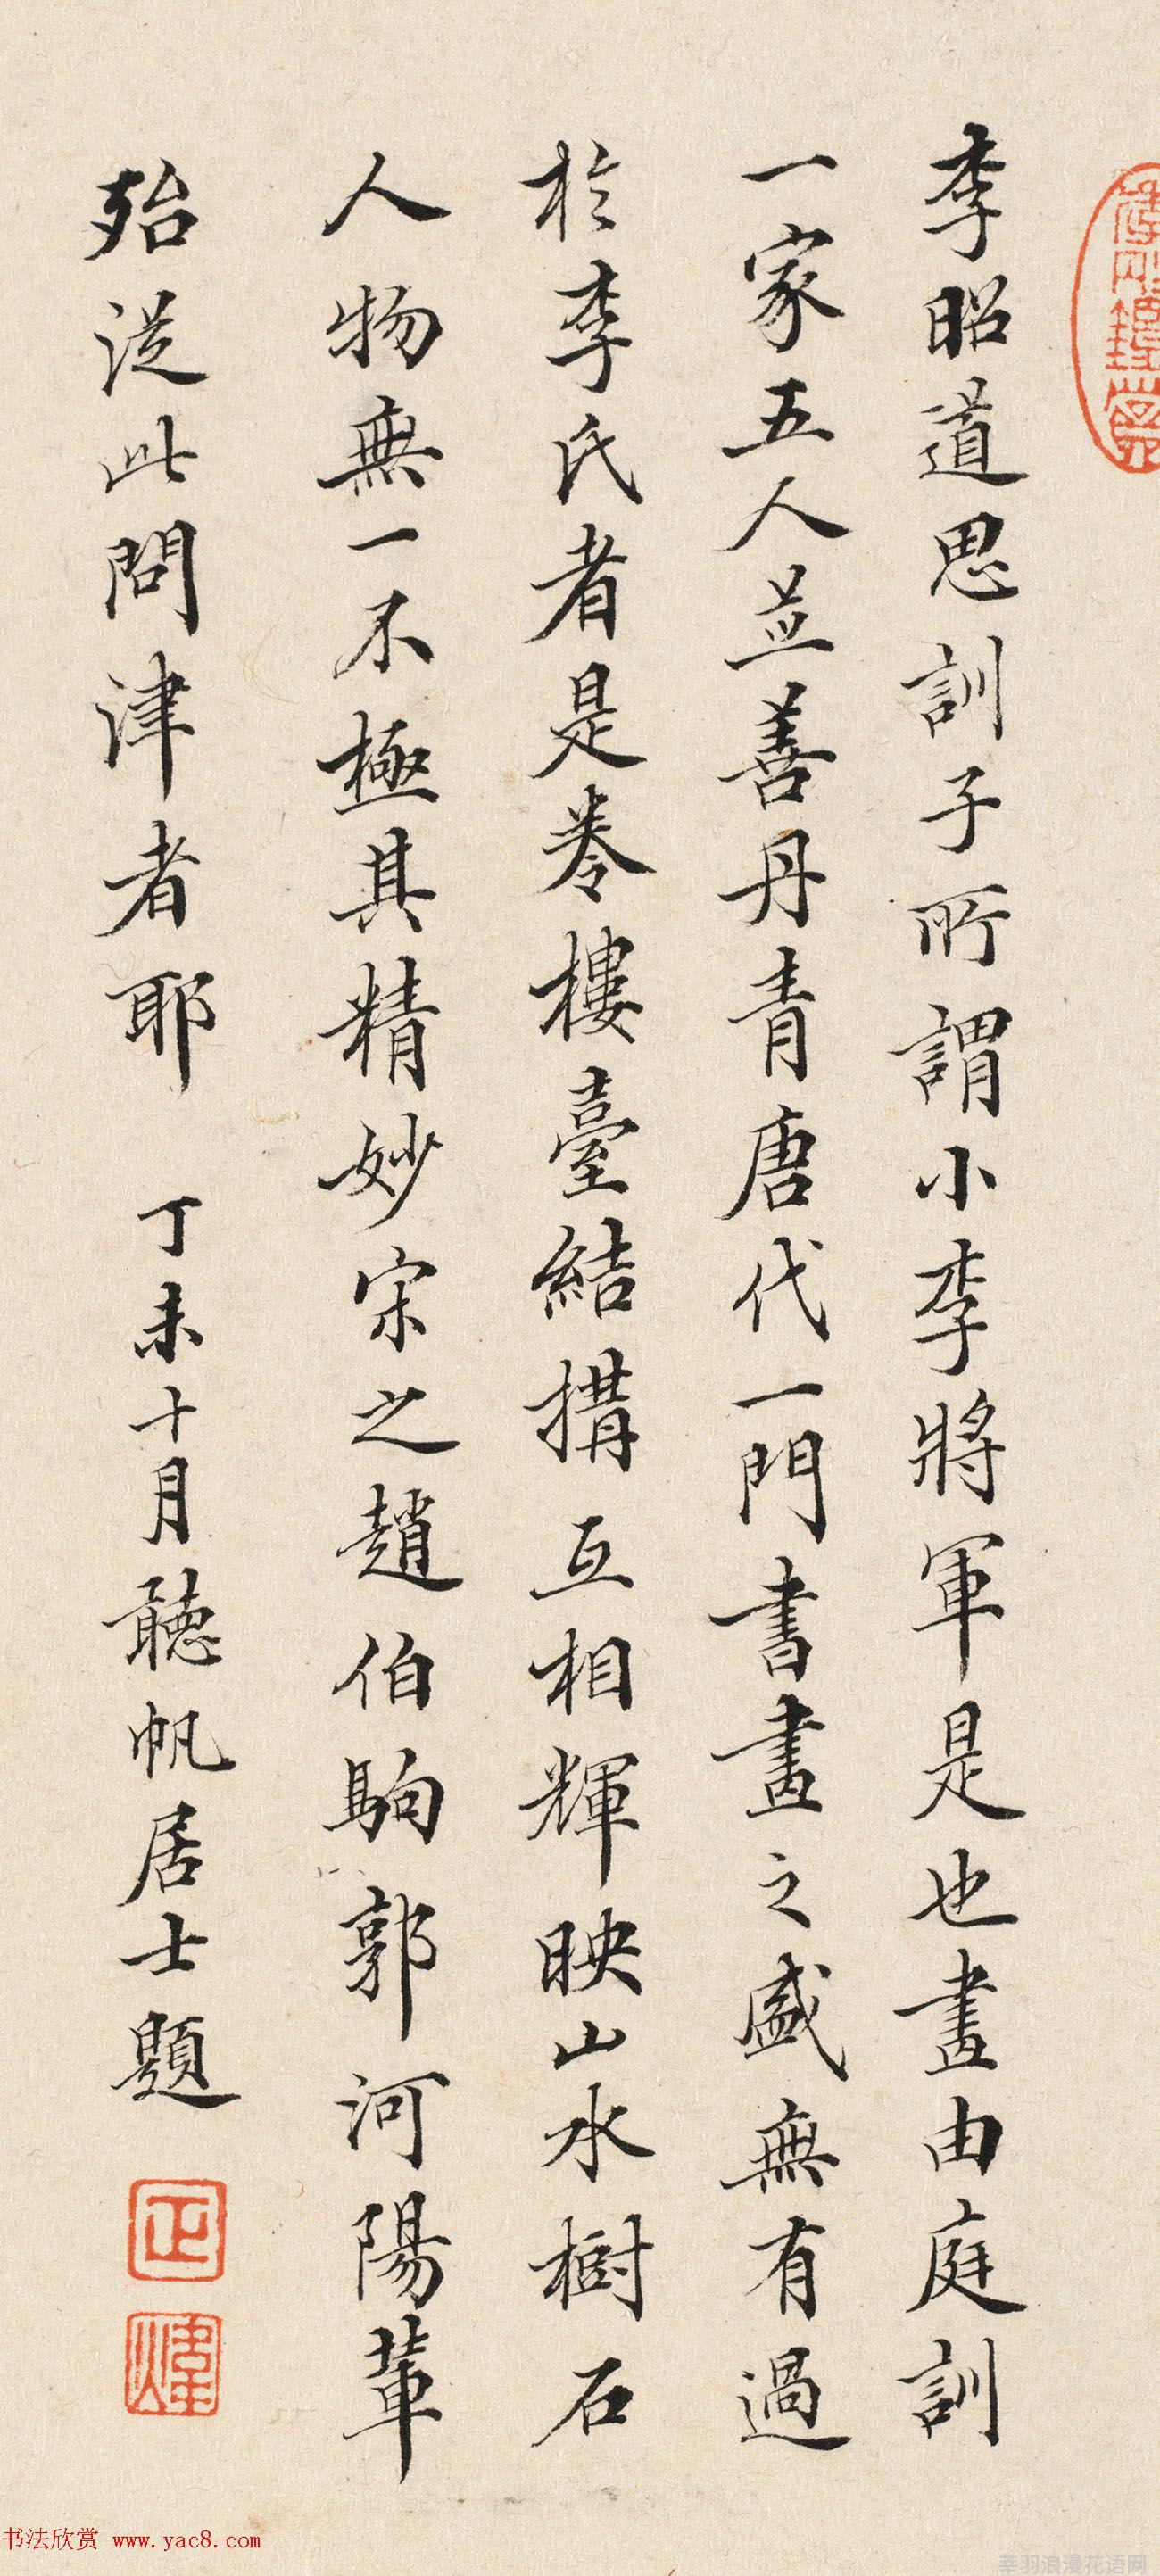 李昭道思訓子所謂小李將軍是也畫由庭訓
一家五人並善丹青唐代一門書畫之盛無有過
於李氏者是卷樓臺結搆互相輝映山水樹石
人物無一不極其精妙宋之趙伯駒郭河陽輩
殆從此問津者耶 丁未十月聽帆居士題
正
煒
书法欣赏 www.yac8.com
莘羽浪漫花语网